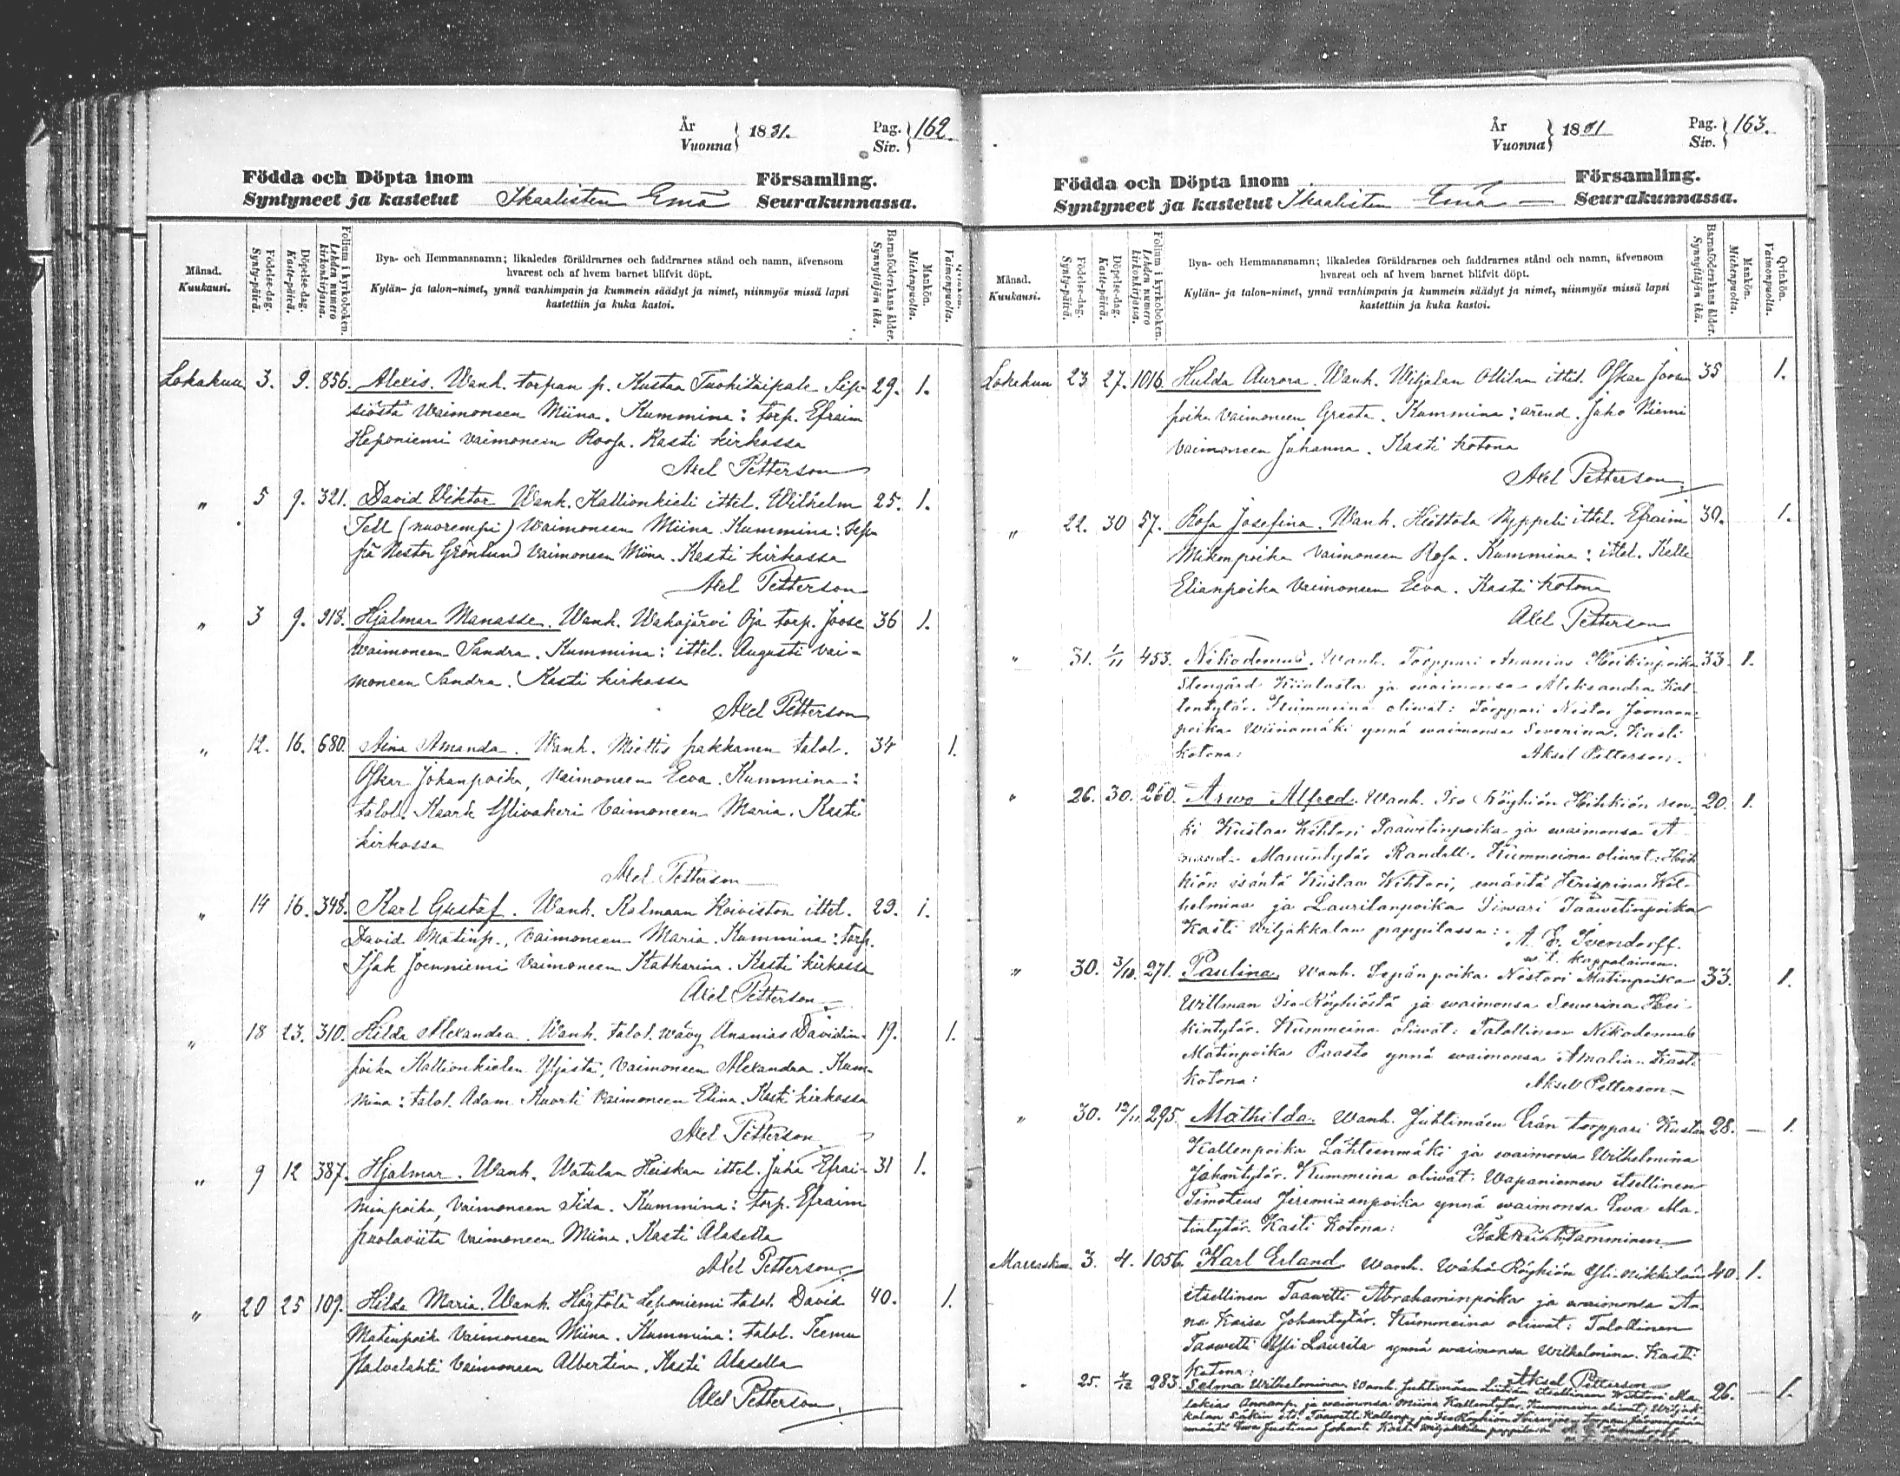 År
Vuonna } 1891.
Pag.
Siv. } 162.
Födda och Döpta inom Församling.
Syntyneet ja kastetut Ikaalisten Emä Seurakunnassa.
Månad.
Kuukausi.
Födelse-dag.
Synty-päivä.
Döpelse-dag.
Kaste-päivä.
Folium i kyrkoboken.
Lehden numero kirkonkirjassa.
Bya- och Hemmansnamn; likaledes föräldrarnes och faddrarnes stånd och namn, äfvensom
hvarest och af hvem barnet blifvit döpt.
Kylän- ja talon-nimet, ynnä vanhimpain ja kummein säädyt ja nimet, niinmyös missä lapsi
kastettiin ja kuka kastoi.
Barnaföderskans ålder.
Synnyttäjän ikä.
Mankön.
Miehenpuolta.
Qvinkön.
Vaimonpuolta.
Lokakuu 3. 9. 856. Alexis. Wanh. torpan p. Kustaa Tuohitaipale Sip- 29. 1.
siöstä Vaimoneen Miina. Kummina: torp. Efraim
Heponiemi vaimoneen Roosa. Kasti kirkossa
Axel Petterson
" 5 9. 321. David Viktor Wanh. Kallionkieli ittel. Wilhelm 25. 1.
Tell (nuorempi) Vaimoneen Miina. Kummina: Sep-
pä Nestor Grönlund Vaimoneen Miina. Kasti kirkossa
Axel Petterson
" 3 9. 918. Hjalmar Manasse. Wanh. Wahojärvi Oja torp. Joose 36 1.
Vaimoneen Sandra. Kummina: ittel. Augusti vai-
moneen Sandra. Kasti kirkossa
Axel Petterson
" 12. 16. 680. Aina Amanda. Wanh. Miettis pakkanen talol. 34 1.
Oskar Johanpoika, Vaimoneen Eeva. Kummina:
talol. Kaark Ylivakeri Vaimoneen Maria. Kasti
kirkossa
Axel Petterson
" 14 16. 348. Karl Gustaf. Wanh. Kalmaan Koiviston ittel. 29. 1.
David Matinp., Vaimoneen Maria. Kummina: torp.
Isak Joenniemi Vaimoneen Katharina. Kasti kirkossa
Axel Petterson
" 18 23. 310. Hilda Alexandra. Wanh. talol. wävy Ananias Davidin- 19. 1.
poika Kallionkielen Yljästä, Vaimoneen Alexandra. Kum-
mina: talol. Adam Kuorti Vaimoneen Elina. Kasti kirkossa
Axel Petterson
" 9 12 387. Hjalmar. Wanh. Watulan Heiskan ittel. Juha Efrai- 31 1.
minpoika, Vaimoneen Iida. Kummina: torp. Efraim
puolaviita Vaimoneen Miina. Kasti Alasella
Axel Petterson
" 20 25 109. Hilda Maria. Wanh. Höytölä Leponiemi talol. David 40. 1.
Matinpoik Vaimoneen Miina. Kummina: talol. Teemu
Palvelahti Vaimoneen Albertina. Kasti Alasella
Axel Petterson
År
Vuonna } 1891
Pag.
Siv. } 163.
Födda och Döpta inom Församling.
Syntyneet ja kastetut Ikaalisten Emä Seurakunnassa.
Månad.
Kuukausi.
Födelse-dag.
Synty-päivä.
Döpelse-dag.
Kaste-päivä.
Folium i kyrkoboken.
Lehden numero kirkonkirjassa.
Bya- och Hemmansnamn; likaledes föräldrarnes och faddrarnes stånd och namn, äfvensom
hvarest och af hvem barnet blifvit döpt.
Kylän- ja talon-nimet, ynnä vanhimpain ja kummein säädyt ja nimet, niinmyös missä lapsi
kastettiin ja kuka kastoi.
Barnaföderskans ålder.
Synnyttäjän ikä.
Mankön.
Miehenpuolta.
Qvinkön.
Vaimonpuolta.
Lokakuu 23 27. 1016. Hulda Aurora. Wanh. Wiljalan Ollilan ittel. Oskar Joosen 35 1.
poika Vaimoneen Greeta. Kummina: arend. Juho Niemi
Vaimoneen Johanna. Kasti kotona
Axel Petterson
" 22. 30 57. Rosa Josefina. Wanh. Heittola Nyppeli ittel. Efraim 39. 1.
Mikonpoika Vaimoneen Rosa. Kummina: ittel. Kalle
Elianpoika Vaimoneen Eeva. Kasti kotona
Axel Petterson
" 31. 1/11 453. Nikodemus. Wanh. Torppari Ananias Heikinpoika 33. 1.
Stengård Kiialasta ja waimonsa Aleksandra Kal-
lentytär. Kummeina oliwat: Torppari Nestor Joonaan-
poika Wiinamäki ynnä waimonsa Severina. Kasti
kotona: Aksel Petterson.
" 26. 30. 260. Arwo Alfred. Wanh. Iso Röyhiön Heihkiön ren- 20. 1.
ki Kustaa Wihtori Taawetinpoika ja waimonsa A-
manda Manuntytär Randell. Kummeina oliwat: Heih-
kiön isäntä Kustaa Wihtori, emäntä Krispina Wil-
helmina ja Laurilanpoika Siwari Taawetinpoika
Kasti Wiljakkalan pappilassa: A. E. Ivendorff.
w. t. kappalainen.
" 30. 3/10. 271. Paulina Wanh. Sepänpoika Nestori Matinpoika 33. 1.
Willman Iso Röyhiöstä ja waimonsa Sewerina Hei-
kintytär. Kummeina oliwat: Talollinen Nikodemus
Matinpoika Paasto ynnä waimonsa Amalia. Kasti
kotona: Aksel Petterson
" 30. 12/11. 295. Mathilda. Wanh. Juhtimäen Erän torppari Kustaa 28. — 1.
Kallenpoika Lähteenmäki ja waimonsa Wilhelmina
Jakontytär. Kummeina oliwat: Wapaniemen itsellinen
Timoteus Jeremiaanpoika ynnä waimonsa Ewa Ma-
tintytär. Kasti kotona: Tamminen
Marraskuu 3. 4. 1056. Karl Erland Wanh. Wähä Röyhiön Yli-Nikkilän 40. 1.
itsellinen Taawetti Abrahaminpoika ja waimonsa An-
na Kaisa Johantytär. Kummeina oliwat: Talollinen
Taawetti Yli Laurila ynnä waimonsa Wilhelmina. Kasti
kotona: Aksel Petterson
25. 4/12 283. Selma Wilhelmina Wanh. Juhtimäen itsellinen Wihtori Ma- 26. — 1.
ja waimonsa Miina Kallentytär. Kummeina oliwat: